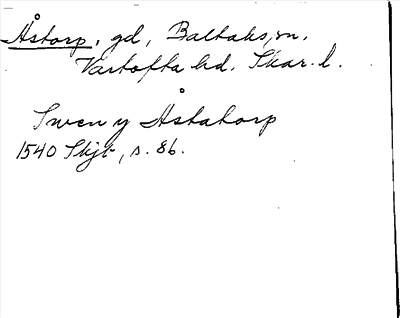 Åstorp, gd, Baltaks, sn.
Vartofta hd. Skar. l.
Swen y Åstatorp
1540 Skjb, s. 86.